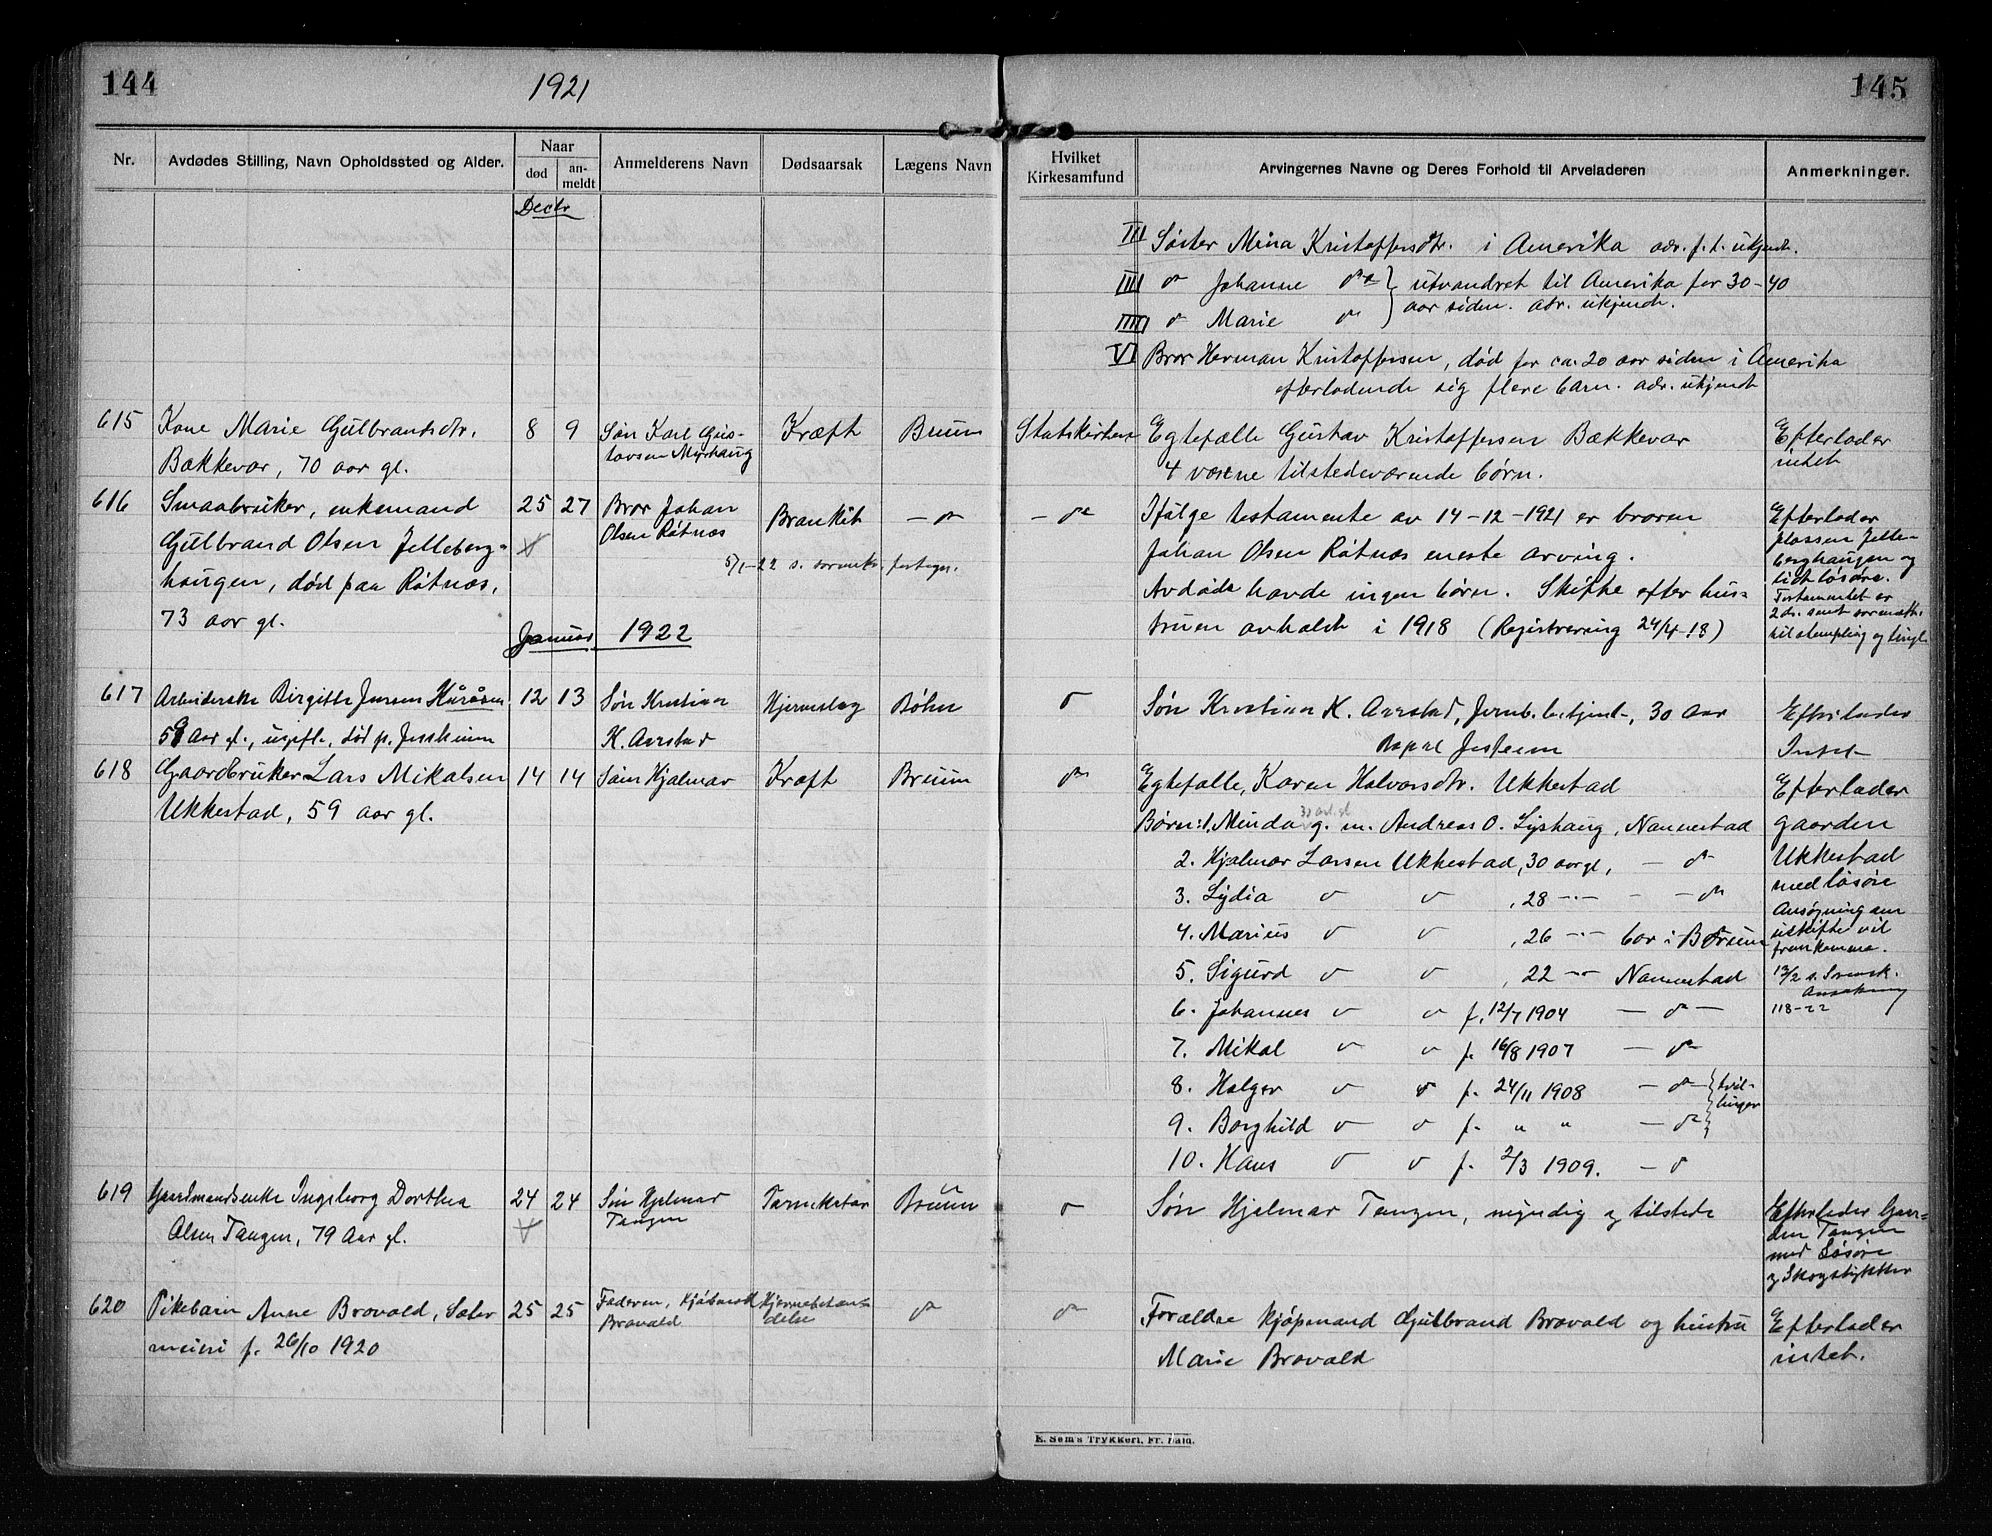 144
1921
145
Nr.
Avdødes Stilling, Navn Opholdssted og Alder.
Naar
død
an-
meldt
Anmelderens Navn
Dødsaarsak
Lægens Navn
Hvilket
Kirkesamfund
Arvingernes Navne og Deres Forhold til Arveladeren
Anmerkninger.
Decbr
III Søster Mina Kristoffersdtr. i Amerika adr. f. t. ukjendt.
IIII do Johanne do } utvandret til Amerika for 30-40
aar siden. adr. ukjendt.
IIIII do Marie do
VI Bror Herman Kristoffersen, død for ca. 20 aar siden i Amerika
efterladende sig flere barn. adr. ukjendt
615 Kone Marie Gulbrandsdtr. 8 9 Søn Karl Gus- Kræft Bruun Statskirken Egtefælle Gustav Kristoffersen Bakkevar Efterlader
Bakkevar, 70 aar gl. tavsen Myrhaug 4 voxne tilstedeværende børn. intet
616 Smaabruker, enkemand 25 27 Bror Johan Brankit — do — do Ifølge testamente av 14-12-1921 er broren Efterlader
Gulbrand Olsen Jelleberg- Olsen Røtnæs Johan Olsen Røtnæs eneste arving. plassen Jelle-
haugen, død paa Røtnæs, 5/1-22 s. Avdøde havde ingen børn. Skifte efter hus- berghaugen og
73 aar gl. truen avholdt i 1918 (Registrering 24/4-18) lidt løsøre.
Testamentet er
til stempling og tingl.
Januar 1922
617 Arbeiderske Birgitte Jensen 12 13 Søn Kristian Hjerneslag Bøhn do Søn Kristian K. Aarstad, Jernb. betjent, 30 Aar Efterlader
59 Aar gl., ugift, død p. Jessheim K. Aarstad Jessheim Intet
618 Gaardbruker Lars Mikalsen 14 14 Søn Hjalmar Kræft Bruun do Egtefælle, Karen Halvorsdtr. Ukkestad Efterlader
Ukkestad, 59 aar gl. Børn: 1. Minda g. m. Andreas O. Lyshaug, Nannestad gaarden
2. Hjalmar Larsen Ukkestad, 30 aar gl, — do Ukkestad
3. Lydia do do , 28 — — do med løsøre
4. Marius do do , 26 — bor i Bærum Ansøgning om
uskifte vil
fremkomme.
5. Sigurd do do , 22 — Nannestad 13/2 s.
6. Johannes do do f. 12/7 1904 — do — 118-22
7. Mikal do do f. 16/8 1907 — do
8. Holger do do f. 24/11 1908 — do } tvil-
linger
9. Borghild do do f. " " — do
10. Hans do do f. 2/3 1909. — do
619 Gaardmandsenke Ingeborg Dorthea 24 24 Søn Hjalmar Bruun do Søn Hjalmar Tangen, myndig og tilstede Efterlader Gaar-
Olsen Tangen, 79 Aar gl. Tangen den Tangen
med Løsøre
og Skogstykker
620 Pikebarn Anne Brovald, 25 25 Faderen, Kjøbmand Hjernebetæn- do do Forældre kjøpmand Gulbrand Brovald og hustru Efterlader
meieri f. 26/10 1920 Brovald delse Marie Brovald intet.
E. Sem's Trykkeri, Fr.hald.